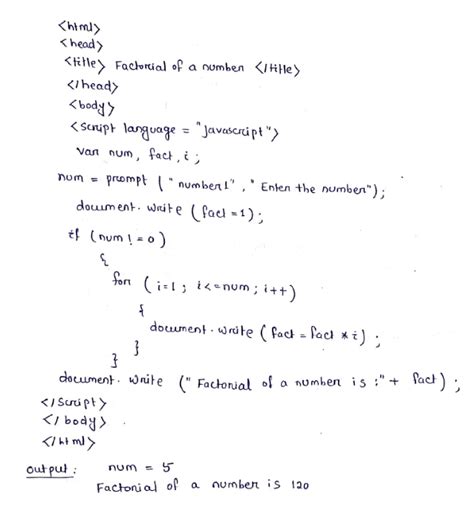 <html>
<head>
<title> Factorial of a number </title>
</head>
<body>
<script language = "Javascript">
var num, fact, i ;
num = prompt ( "number1" , " Enter the number");
document. write ( fact =1) ;
if (num ! = 0)
{
for ( i=1 ; i<=num ; i++)
{
document. write ( fact = fact * i) ;
}
}
document. write (" Factorial of a number is :" + fact) ;
</script>
</body>
</html>
output : num = 5
Factorial of a number is 120